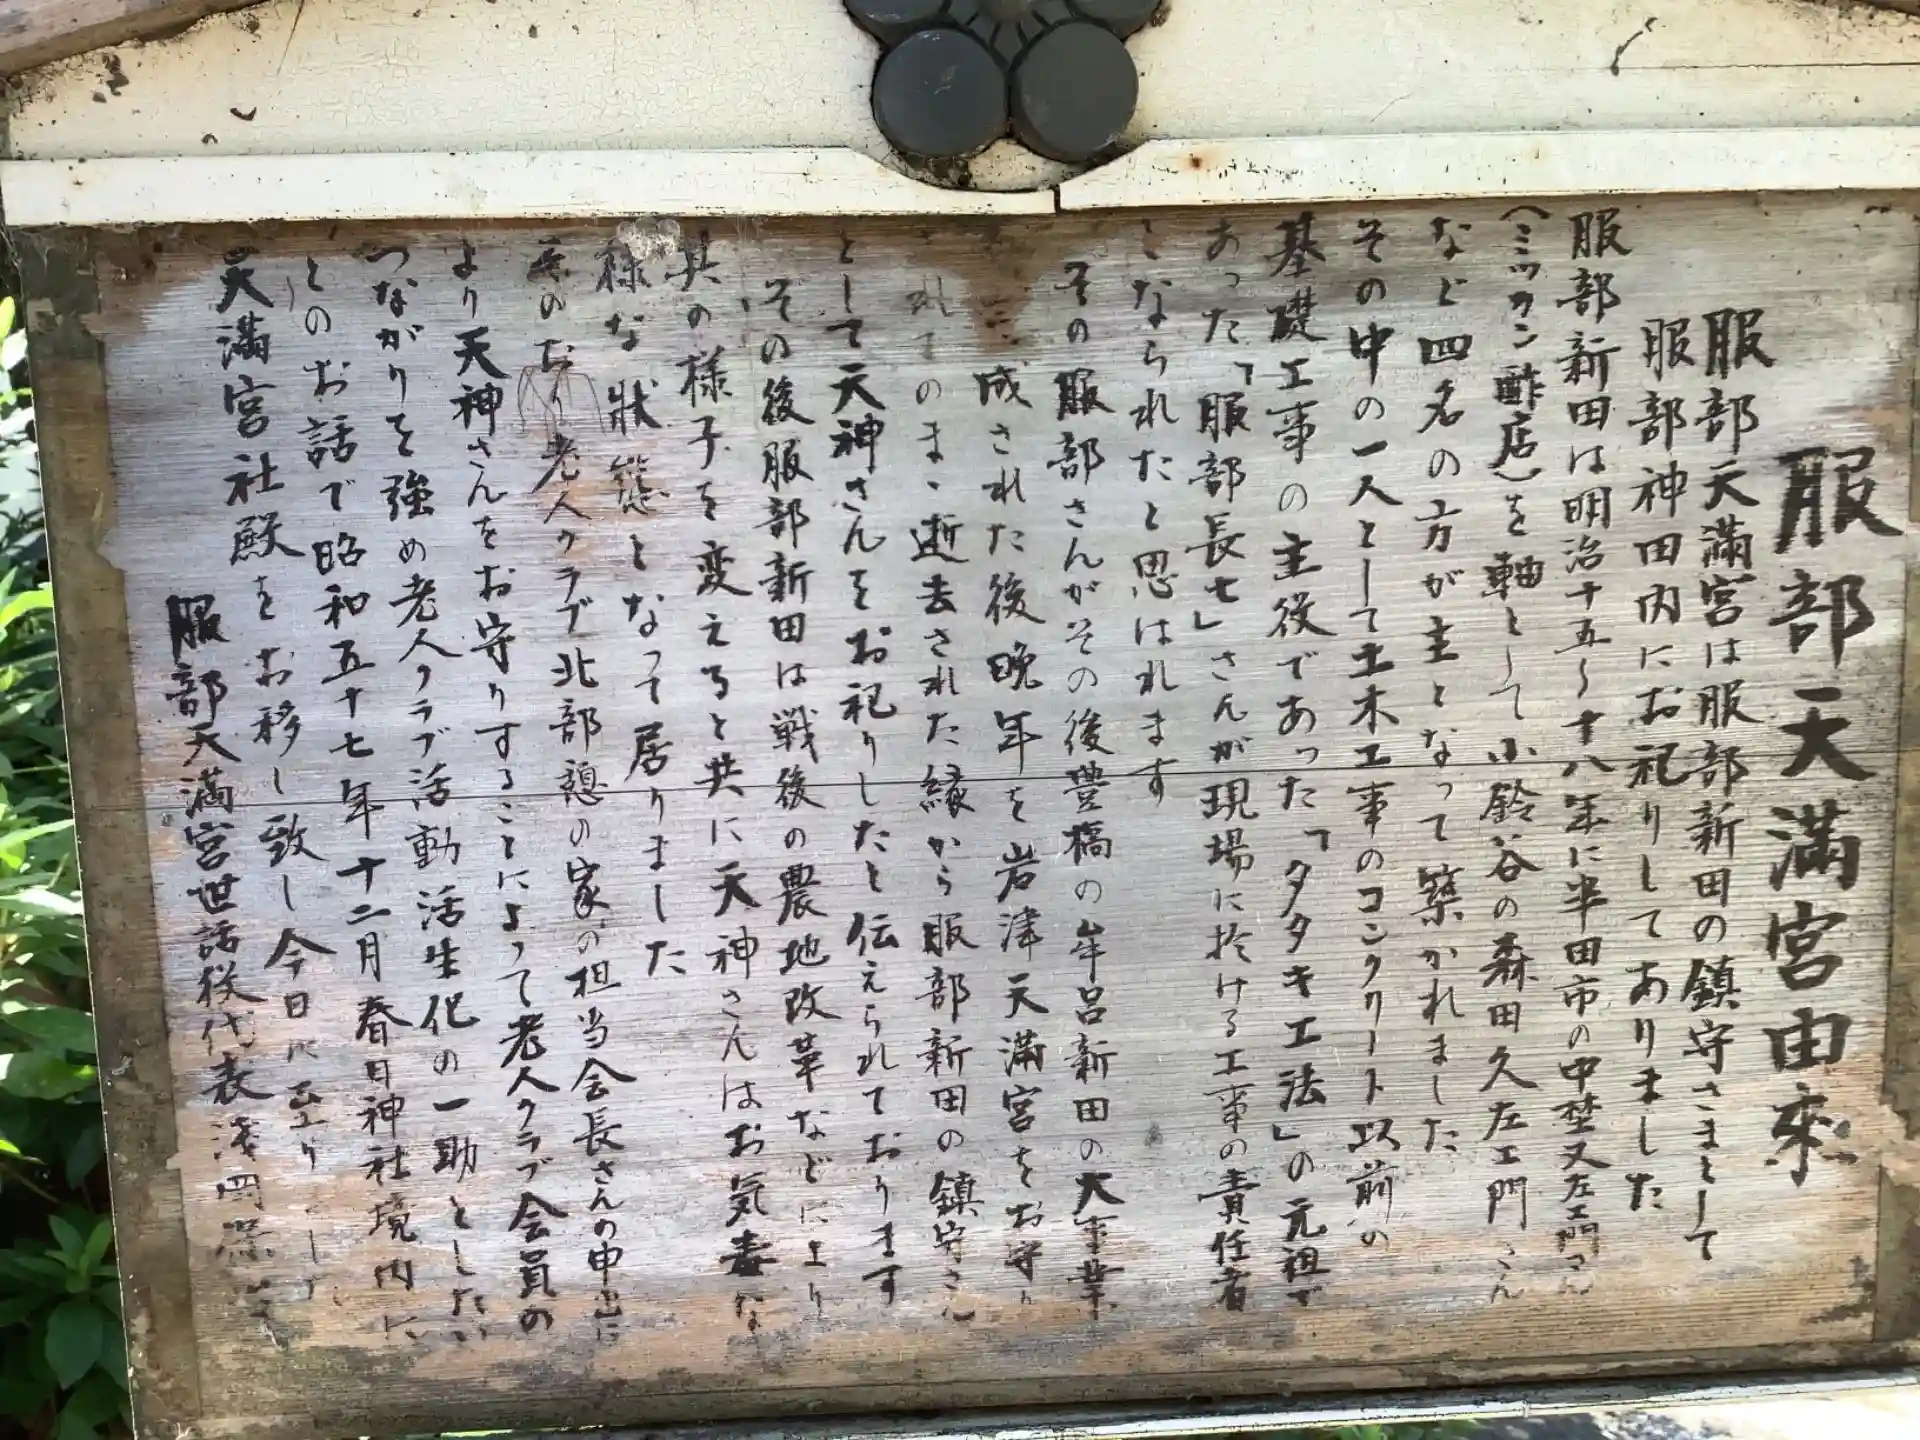 服部天満宮由来
服部天満宮は服部新田の鎮守さまとして
服部神田内にお祀りしてありました
服部新田は明治十五〜十八年に半田市の中埜又左エ門さん
(ミツカン酢店)を軸として小鈴谷の森田久左エ門さん
など四名の方が主となって築かれました
その中の一人として土木工事のコンクリート以前の
基礎工事の主役であった「タタキ工法」の元祖で
あった「服部長七」さんが現場に於ける工事の責任者
となられたと思はれます
その服部さんがその後豊橋の牟呂新田の大事業
成された後晩年を岩津天満宮をお守り
れてのまゝ逝去された縁から服部新田の鎮守さん
として天神さんをお祀りしたと伝えられております
その後服部新田は戦後の農地改革などにより
其の様子を変えると共に天神さんはお気毒な
様な状態となって居りました
のおり老人クラブ北部憩の家の担当会長さんの申出に
より天神さんをお守りすることによって老人クラブ会員の
つながりを強め老人クラブ活動活生化の一助としたい
とのお話で昭和五十七年十二月春日神社境内に
天満宮社殿をお移し致し今日に至り
服部天満宮世話役代表浅岡